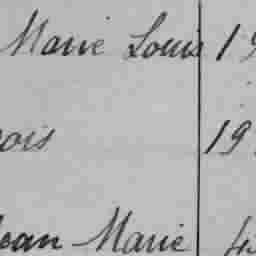 Marie Louis 19
ois 19
Jean Marie 4